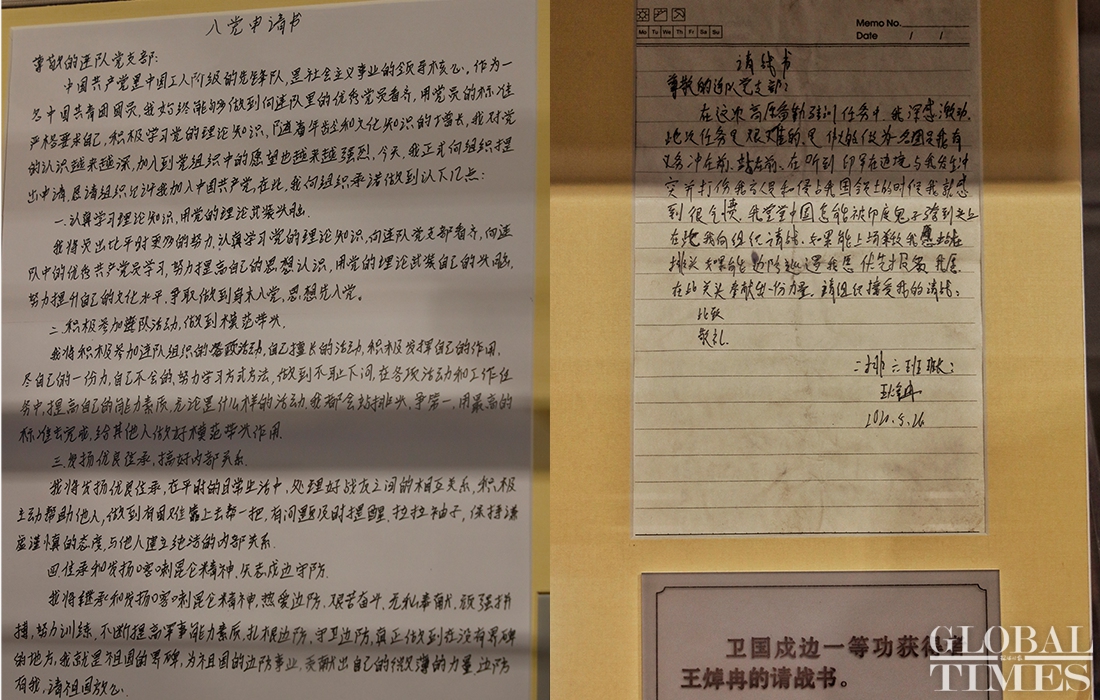 入党申请书
尊敬的连队党支部:
中国共产党是中国工人阶级的先锋队,是社会主义事业的领导核心。作为一
名中国共青团团员,我始终能够做到向连队里的优秀党员看齐,用党员的标准
严格要求自己,积极学习党的理论知识,随着年龄和文化知识的增长,我对党
的认识越来越深,加入到党组织中的愿望也越来越强烈,今天,我正式向组织提
出申请,恳请组织允许我加入中国共产党,在此,我向组织承诺做到以下几点:
一.认真学习理论知识,用党的理论武装头脑.
我将突出比平时更多的努力,认真学习党的理论知识,向连队党支部看齐,向连
队中的优秀共产党员学习,努力提高自己的思想认识,用党的理论武装自己的头脑,
努力提升自己的文化水平,争取做到身未入党,思想先入党。
二.积极参加连队活动,做到模范带头.
我将积极参加连队组织的各项活动,自己擅长的活动,积极发挥自己的作用.
尽自己的一份力,自己不会的,努力学习方式方法,做到不耻下问,在各项活动和工作任
务中,提高自己的能力素质,无论是什么样的活动,我都会站排头,争第一,用最高的
标准去完成,给其他人做好模范带头作用.
三.发扬优良传承,搞好内部关系.
我将发扬优良传承,在平时的日常生活中,处理好战友之间的相互关系,积极
主动帮助他人,做到有困难靠上去帮一把,有问题及时提醒,拉拉袖子,保持谦
虚谨慎的态度,与他人建立纯洁的内部关系.
四.传承和发扬喀喇昆仑精神,矢志戍边守防.
我将继承和发扬喀喇昆仑精神,热爱边防,艰苦奋斗,无私奉献,顽强拼
搏,努力训练,不断提高军事能力素质,扎根边防,守卫边防,真正做到在没有界碑
的地方,我就是祖国的界碑,为祖国的边防事业,贡献出自己的微薄的力量,边防
有我,请祖国放心.
Memo No.
Mo Tu We Th Fr Sa Su
Date / /
请战书
尊敬的连队党支部:
在这次高原备勤驻训任务中,我深感激动.
此次任务是艰难的,是
义务冲在前.站在前.在听到印军在边境与我发生冲
突并打伤我方人员和侵占我国领土的时候我就感
到很气愤.我堂堂中国怎能被印度鬼子骑到头上
在此我向组织请战.如果能上场杀敌我愿站在
排头 如果能边防巡逻我愿 优先报名 我愿
在此关头奉献出一份力量.请组织接受我的请战:
此致
敬礼
二排六班
王焯冉
2020.5.26
卫国戍边一等功获得者
王焯冉的请战书。
GLOBAL
TIMES